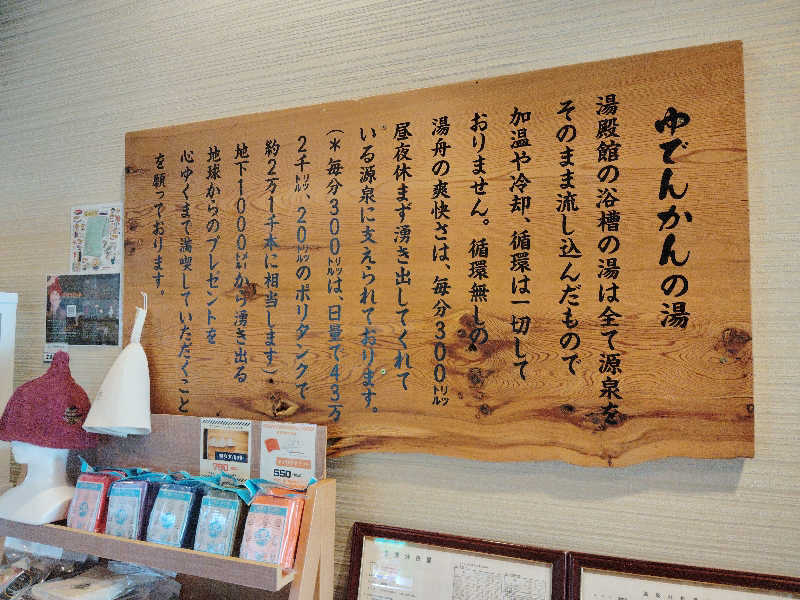 ゆでんかんの湯
湯殿館の浴槽の湯は全て源泉を
そのまま流し込んだもので
加温や冷却、循環は一切して
おりません。循環無しの
湯舟の爽快さは、毎分300㍑
昼夜休まず湧き出してくれて
いる源泉に支えられております。
(*毎分300㍑は、日量で43万
2千㍑、20㍑のポリタンクで
約2万1千本に相当します)
地下1000㍍から湧き出る
地球からのプレゼントを
心ゆくまで満喫していただくこと
を願っております。
790
550